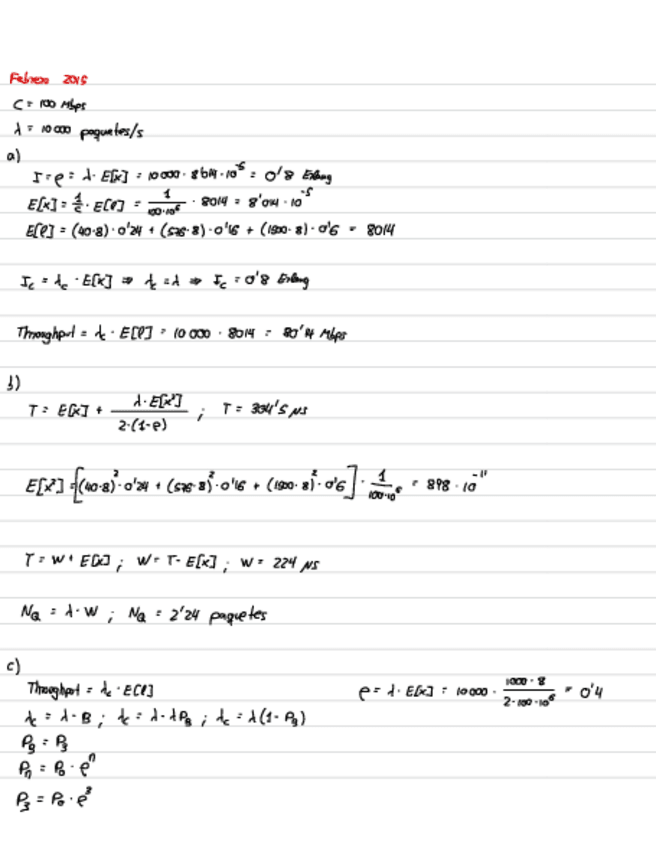 Febrero 2015
C = 100 Mbps
λ = 10000 paquetes/s
a)
I = ρ = λ · E[x] = 10000 · 8014 · 10^-5 = 0'8 Erlang
E[x] = 1/C · E[l] = 1/100·10^6 · 8014 = 8'014 · 10^-5
E[l] = (40·8) · 0'24 + (576·8) · 0'16 + (1500·8) · 0'6 = 8014
Ic = λc · E[x] ⇒ λc = λ ⇒ Ic = 0'8 Erlang
Throughput = λc · E[l] = 10000 · 8014 = 80'14 Mbps
b)
T = E[x] + λ·E[x²] / 2·(1-ρ) ; T = 304'5 μs
E[x²] = [(40·8)²·0'24 + (576·8)²·0'16 + (1500·8)²·0'6] · 1/100·10^6 = 898 · 10^-11
T = W + E[x] ; W = T - E[x] ; W = 224 μs
NQ = λ · W ; NQ = 2'24 paquetes
c)
Throughput = λc · E[l] ρ = λ · E[x] = 10000 · 1000·8 / 2·100·10^6 = 0'4
λc = λ - B ; λc = λ - λPB ; λc = λ(1 - PB)
PB = P3
Pn = P0 · ρ^n
P3 = P0 · ρ^3